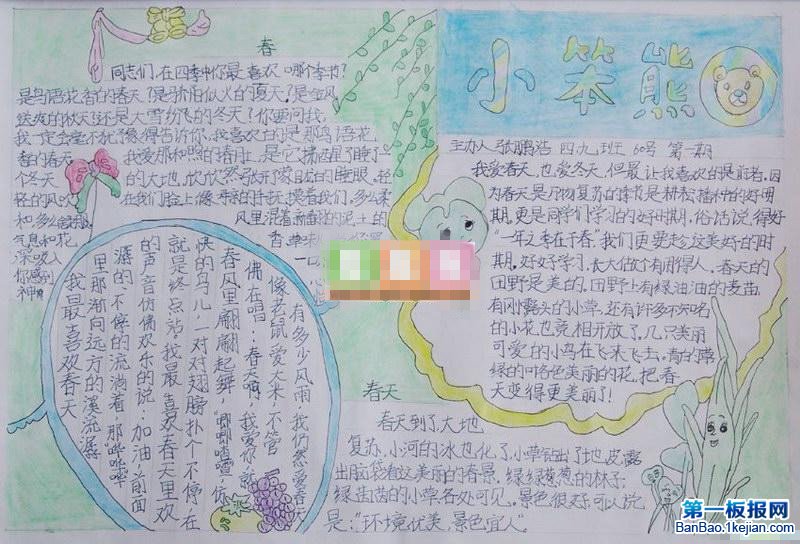 小笨熊
主办人张鹏浩 四九班 60号 第一期
春
同志们,在四季中你最喜欢哪个季节?
是鸟语花香的春天?是骄阳似火的夏天?是金风
送爽的秋天?还是大雪纷飞的冬天?你要问我,
我一定会毫不犹豫得告诉你,我喜欢的是那鸟语花
香的春天。
我爱那和煦的春阳,是它揣醒了睡了一
个冬天
的大地,欣欣然张开朦胧的睡眼。轻
轻的风吹
在我们脸上像母亲的手抚摸着我们,多么柔
和,多么
风里混着新翻的泥土的
气息和花
香
深吸
你感到
神
有多少风雨,我仍然爱春天
像老鼠爱大米,不管
佛在唱:春天啊,我爱你,就
春风里翩翩起舞,唧唧喳喳,仿
快的鸟儿,一对对翅膀扑个不停,在
就是终点站。我最喜欢春天里欢
的声音仿佛欢乐的说:加油,前面
潺的不停的流淌着,那哗哗
里那渐向远方的溪流潺
我最喜欢春天
我爱春天,也爱冬天,但最让我喜欢的是前者,因
为春天是万物复苏的季节,是耕松播种的好时
期,更是同学们学习的好时期,俗话说得好
“一年之季在于春”我们更要趁这美好的时
期,好好学习,长大后做个有用得人。春天的
田野是美的,田野上有绿油油的麦苗,
有刚露头的小草,还有许多不知名
的小花也竞相开放了,几只美丽
可爱的小鸟在飞来飞去,高的
绿的叶各色美丽的花,把春
天变得更美丽了!
春天
春天到了,大地
复苏,小河的冰也化了,小草钻出了地皮,露
出脑袋看这美丽的春景,绿绿葱葱的林子,
绿油茵的小草各处可见。景色很好,可以说
是:“环境优美,景色宜人”。
第一板报网
BanBao.1kejian.com